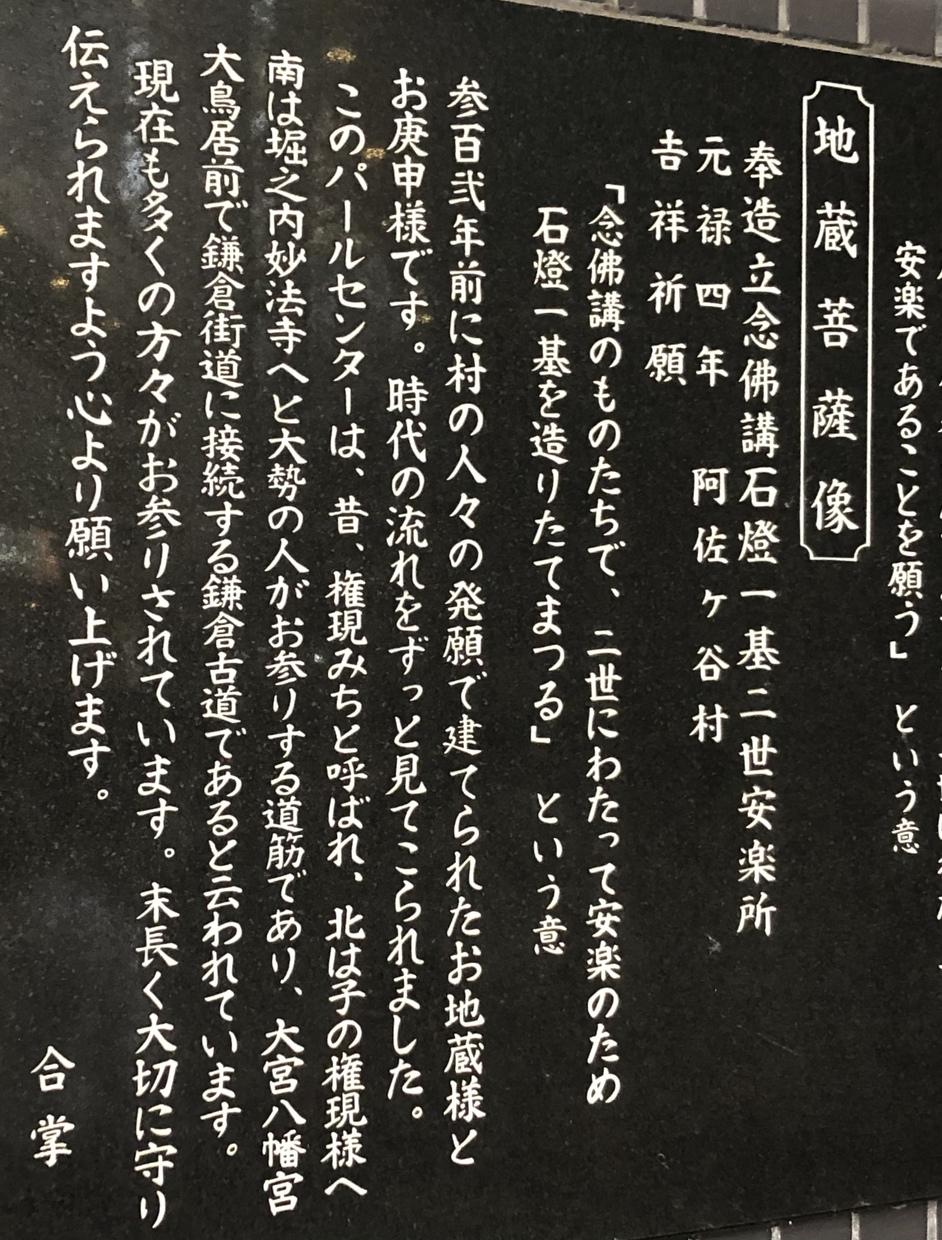 安楽であることを願う」という意
地蔵菩薩像
奉造立念佛講石燈一基二世安楽所
元禄四年　阿佐ヶ谷村
吉祥祈願
「念佛講のものたちで、二世にわたって安楽のため
石燈一基を造りたてまつる」という意
参百弐年前に村の人々の発願で建てられたお地蔵様と
お庚申様です。時代の流れをずっと見てこられました。
このパールセンターは、昔、権現みちと呼ばれ、北は子の権現様へ
南は堀之内妙法寺へと大勢の人がお参りする道筋であり、大宮八幡宮
大鳥居前で鎌倉街道に接続する鎌倉古道であると云われています。
現在も多くの方々がお参りされています。末長く大切に守り
伝えられますよう心より願い上げます。
合掌